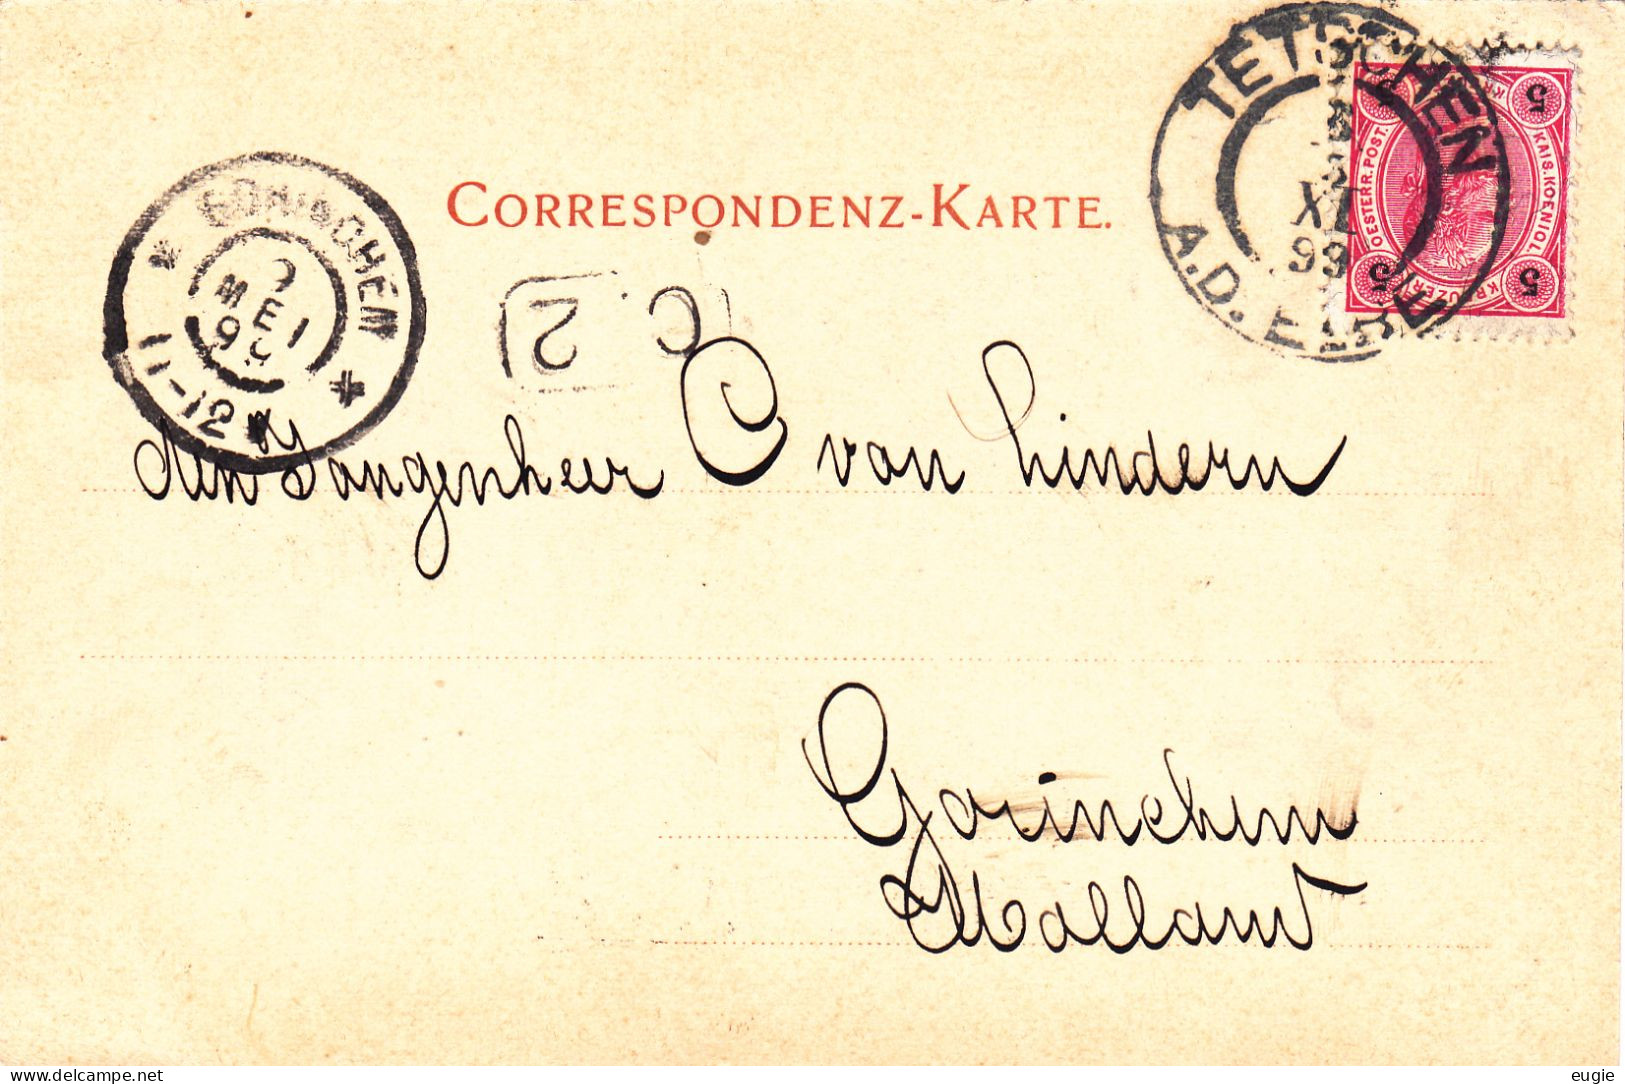 CORRESPONDENZ-KARTE.
TETSCHEN
XI
99
A.D. ELBE
5 5
OESTERR. POST.
KAIS. KOENIGL.
KREUZER
5 5
GORINCHEM
MEI
9
11-12
2
C
den Jongenheer C van Lindern
Gorinchem
Holland
eugie